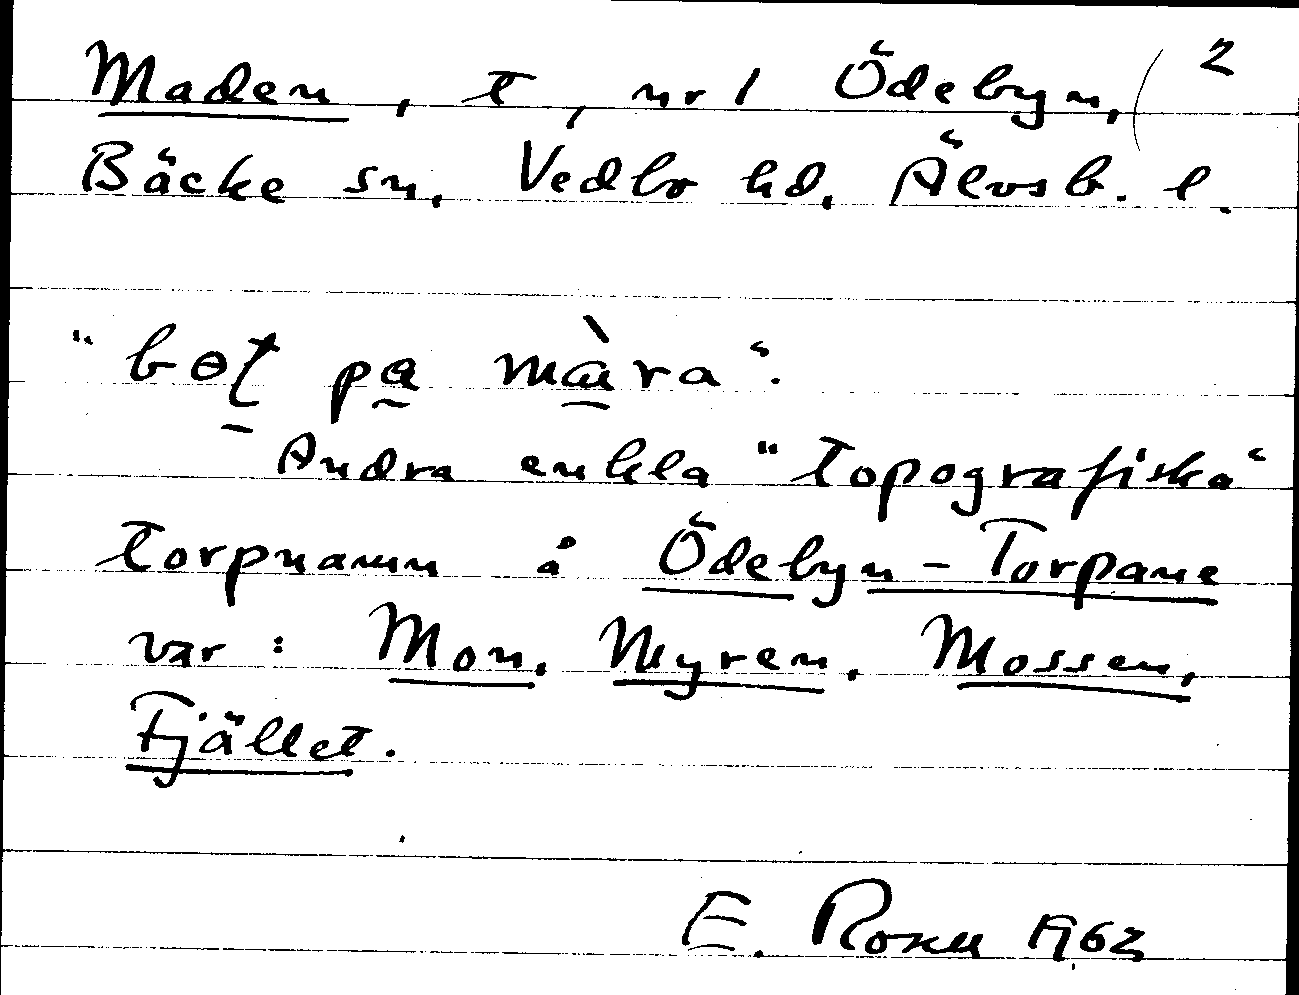 Maden, t, nr 1 Ödebyn, ( 2
Bäcke sn. Vedbo hd. Älvsb. l.
"bɵt pa màra".
Andra enkla "topografiska"
torpnamn å Ödebyn-Torpane
var: Mon, Myren, Mossen,
Fjället.
E. Rosell 1962